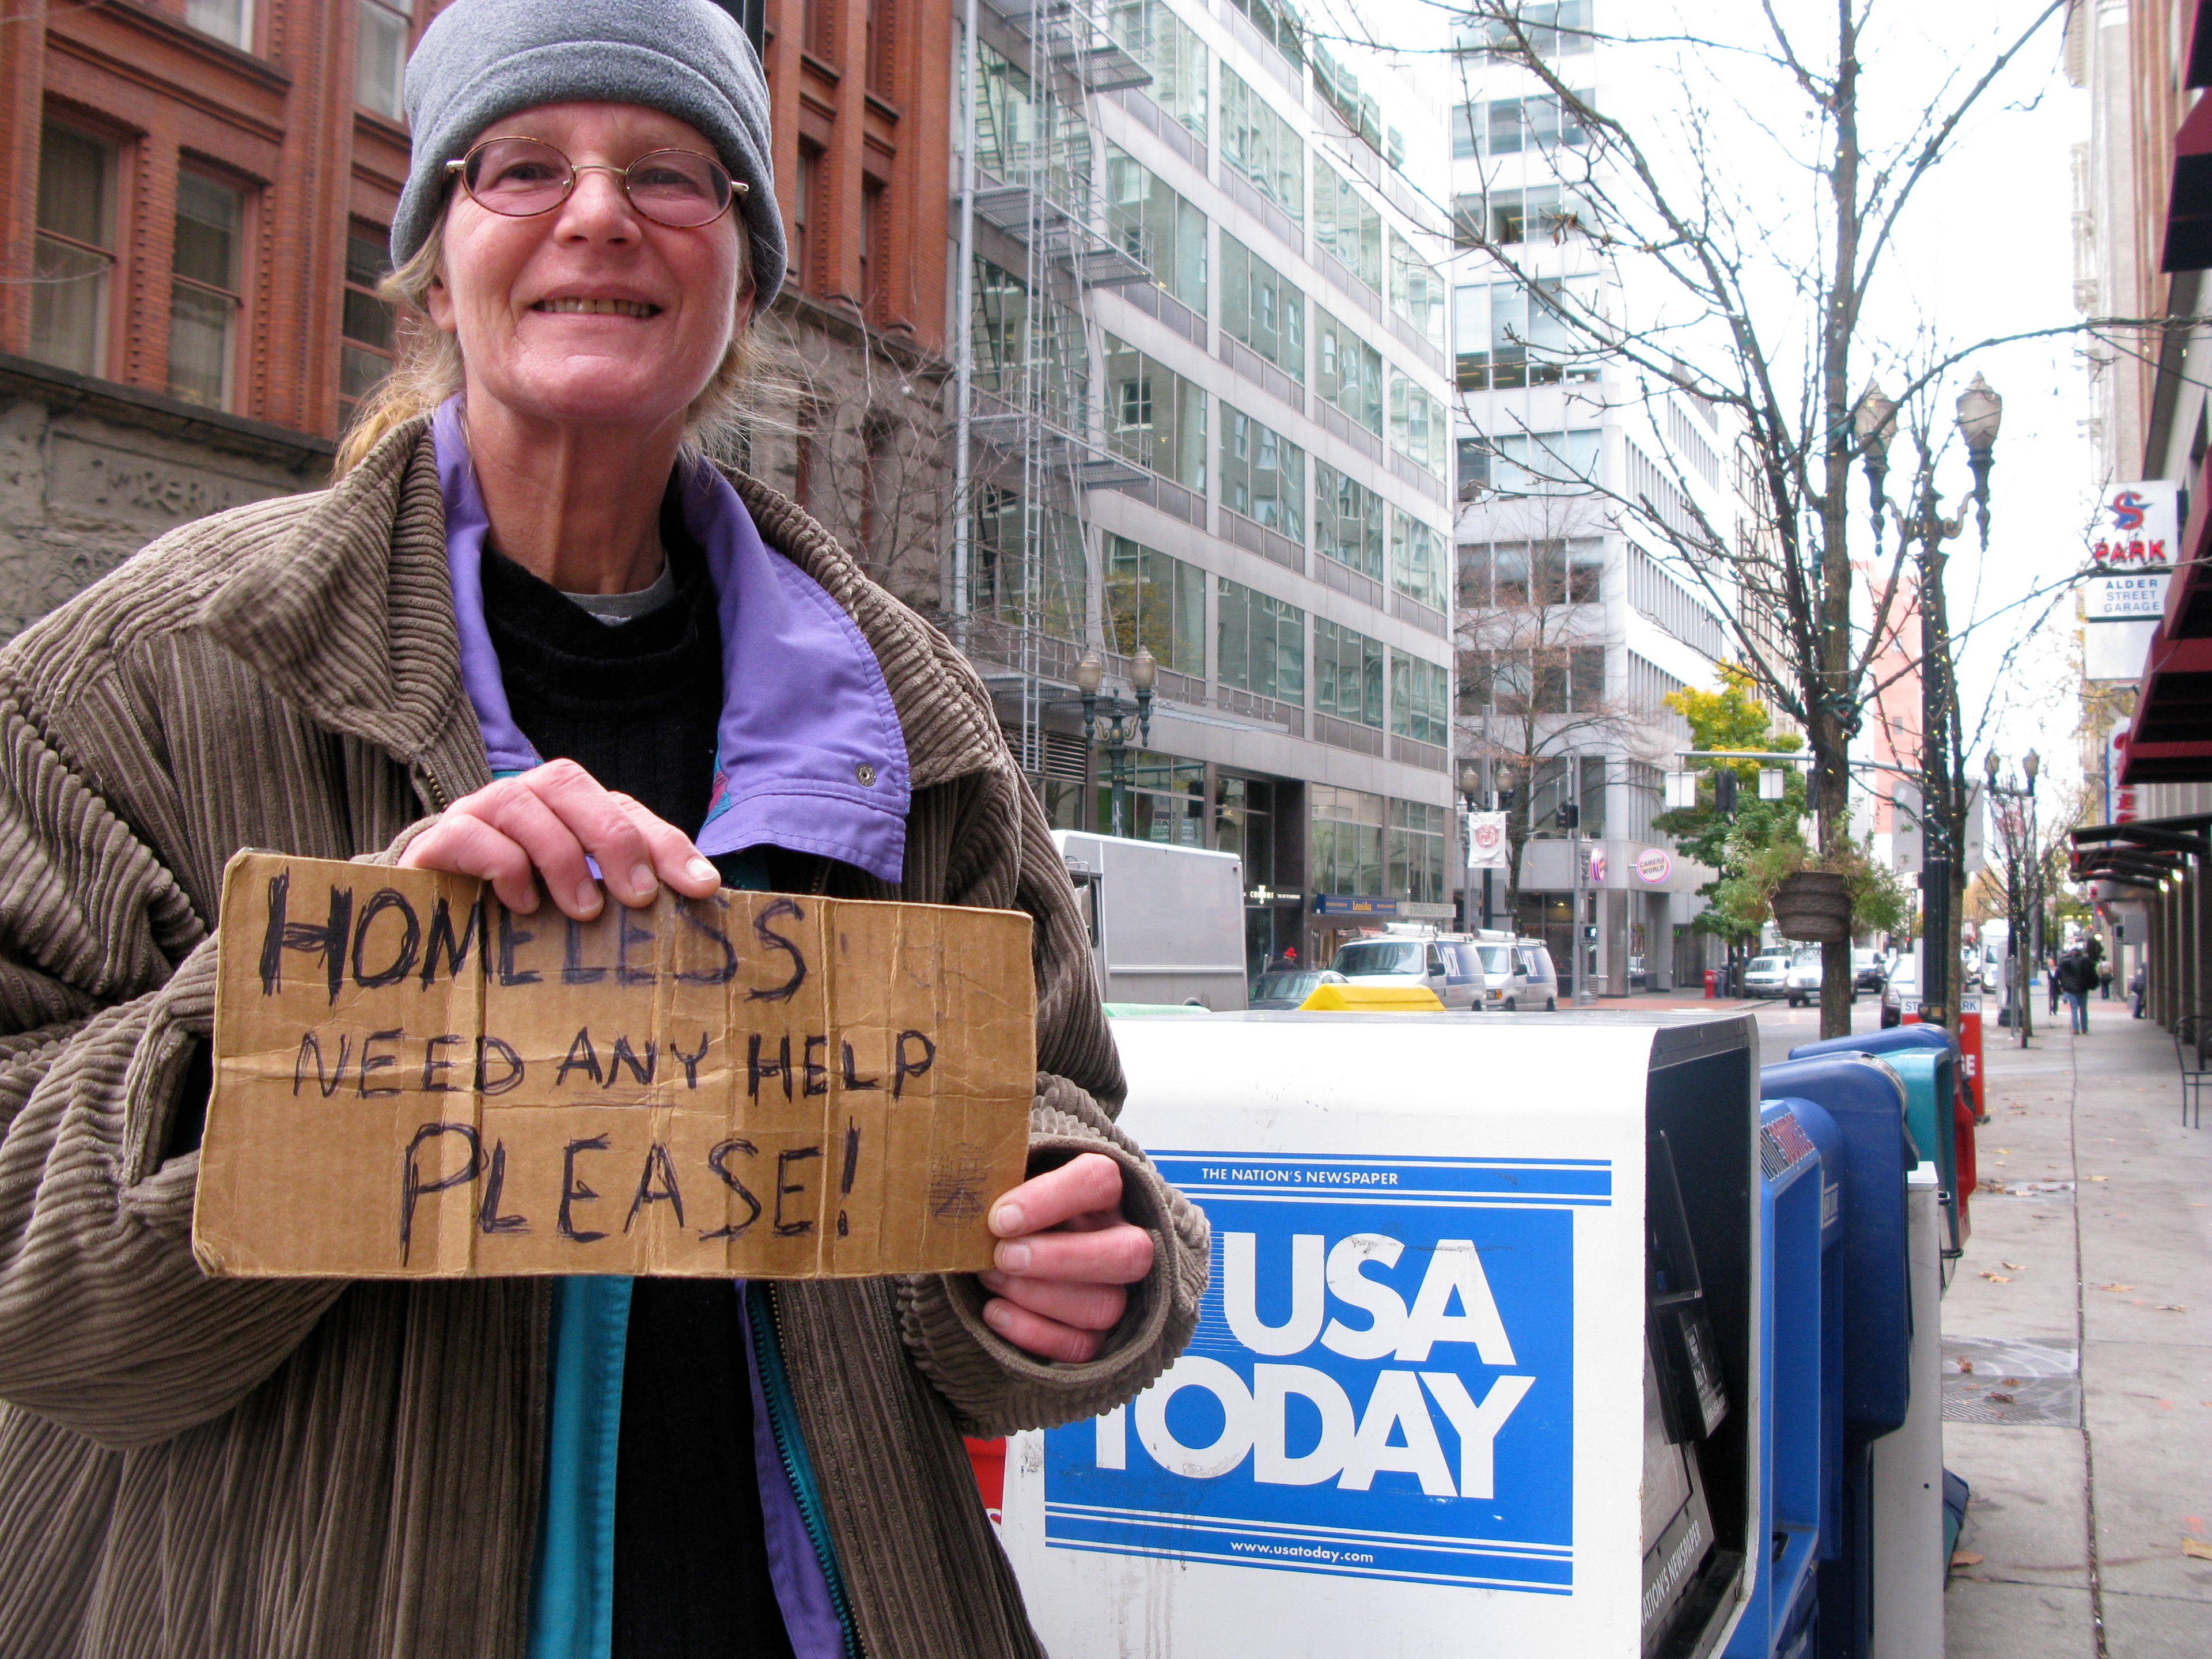 HOMELESS
NEED ANY HELP
PLEASE!
THE NATION'S NEWSPAPER
USA
TODAY
www.usatoday.com
S
PARK
ALDER
STREET
GARAGE
CAMERA
WORLD